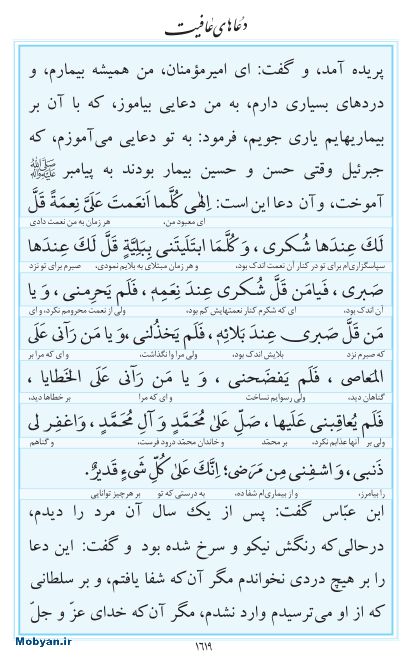 دعاهای عافیت
پریده آمد، و گفت: ای امیرمؤمنان، من همیشه بیمارم، و
دردهای بسیاری دارم، به من دعایی بیاموز، که با آن بر
بیماریهایم یاری جویم، فرمود: به تو دعایی می‌آموزم، که
جبرئیل وقتی حسن و حسین بیمار بودند به پیامبر ﷺ
آموخت، و آن دعا این است: اِلهٰی كُلَّما اَنعَمتَ عَلَیَّ نِعمَةً قَلَّ
ای معبود من، هر زمان به من نعمت دادی
لَكَ عِندَها شُكری ، وَ كُلَّمَا ابتَلَیتَنی بِبَلِیَّةٍ قَلَّ لَكَ عِندَها
سپاسگزاری‌ام برای تو در کنار آن نعمت اندک بود، و هر زمان مبتلای به بلایم نمودی، صبرم برای تو نزد
صَبری ، فَیامَن قَلَّ شُكری عِندَ نِعَمِهٖ ، فَلَم یَحرِمنی ، وَ یا
آن اندک بود، ای که شکرم کنار نعمتهایش کم بود، ولی از نعمت محرومم نکرد، و ای
مَن قَلَّ صَبری عِندَ بَلائِهٖ، فَلَم یَخذُلنی ،وَ یا مَن رَآنی عَلَی
که صبرم نزد بلایش اندک بود، ولی مرا وا نگذاشت، و ای که مرا بر
المَعاصی ، فَلَم یَفضَحنی ، وَ یا مَن رَآنی عَلَی الخَطایا ،
گناهان دید، ولی رسوایم نساخت و ای که مرا بر خطاها دید،
فَلَم یُعاقِبنی عَلَیها ، صَلِّ عَلیٰ مُحَمَّدٍ وَ آلِ مُحَمَّدٍ ، وَاغفِر لی
ولی بر آنها عذابم نکرد، بر محمّد و خاندان محمّد درود فرست، و گناهم
ذَنبی ، وَ اشفِنی مِن مَرَضی؛ اِنَّكَ عَلیٰ كُلِّ شَیءٍ قَدیرٌ.
را بیامرز، و از بیماری‌ام شفا ده، به درستی که تو بر هرچیز توانایی
ابن عبّاس گفت: پس از یک سال آن مرد را دیدم،
درحالی‌که رنگش نیکو و سرخ شده بود و گفت: این دعا
را بر هیچ دردی نخواندم مگر آن‌که شفا یافتم، و بر سلطانی
که از او می‌ترسیدم وارد نشدم، مگر آن‌که خدای عزّ و جلّ
Mobyan.ir
۱۶۱۹